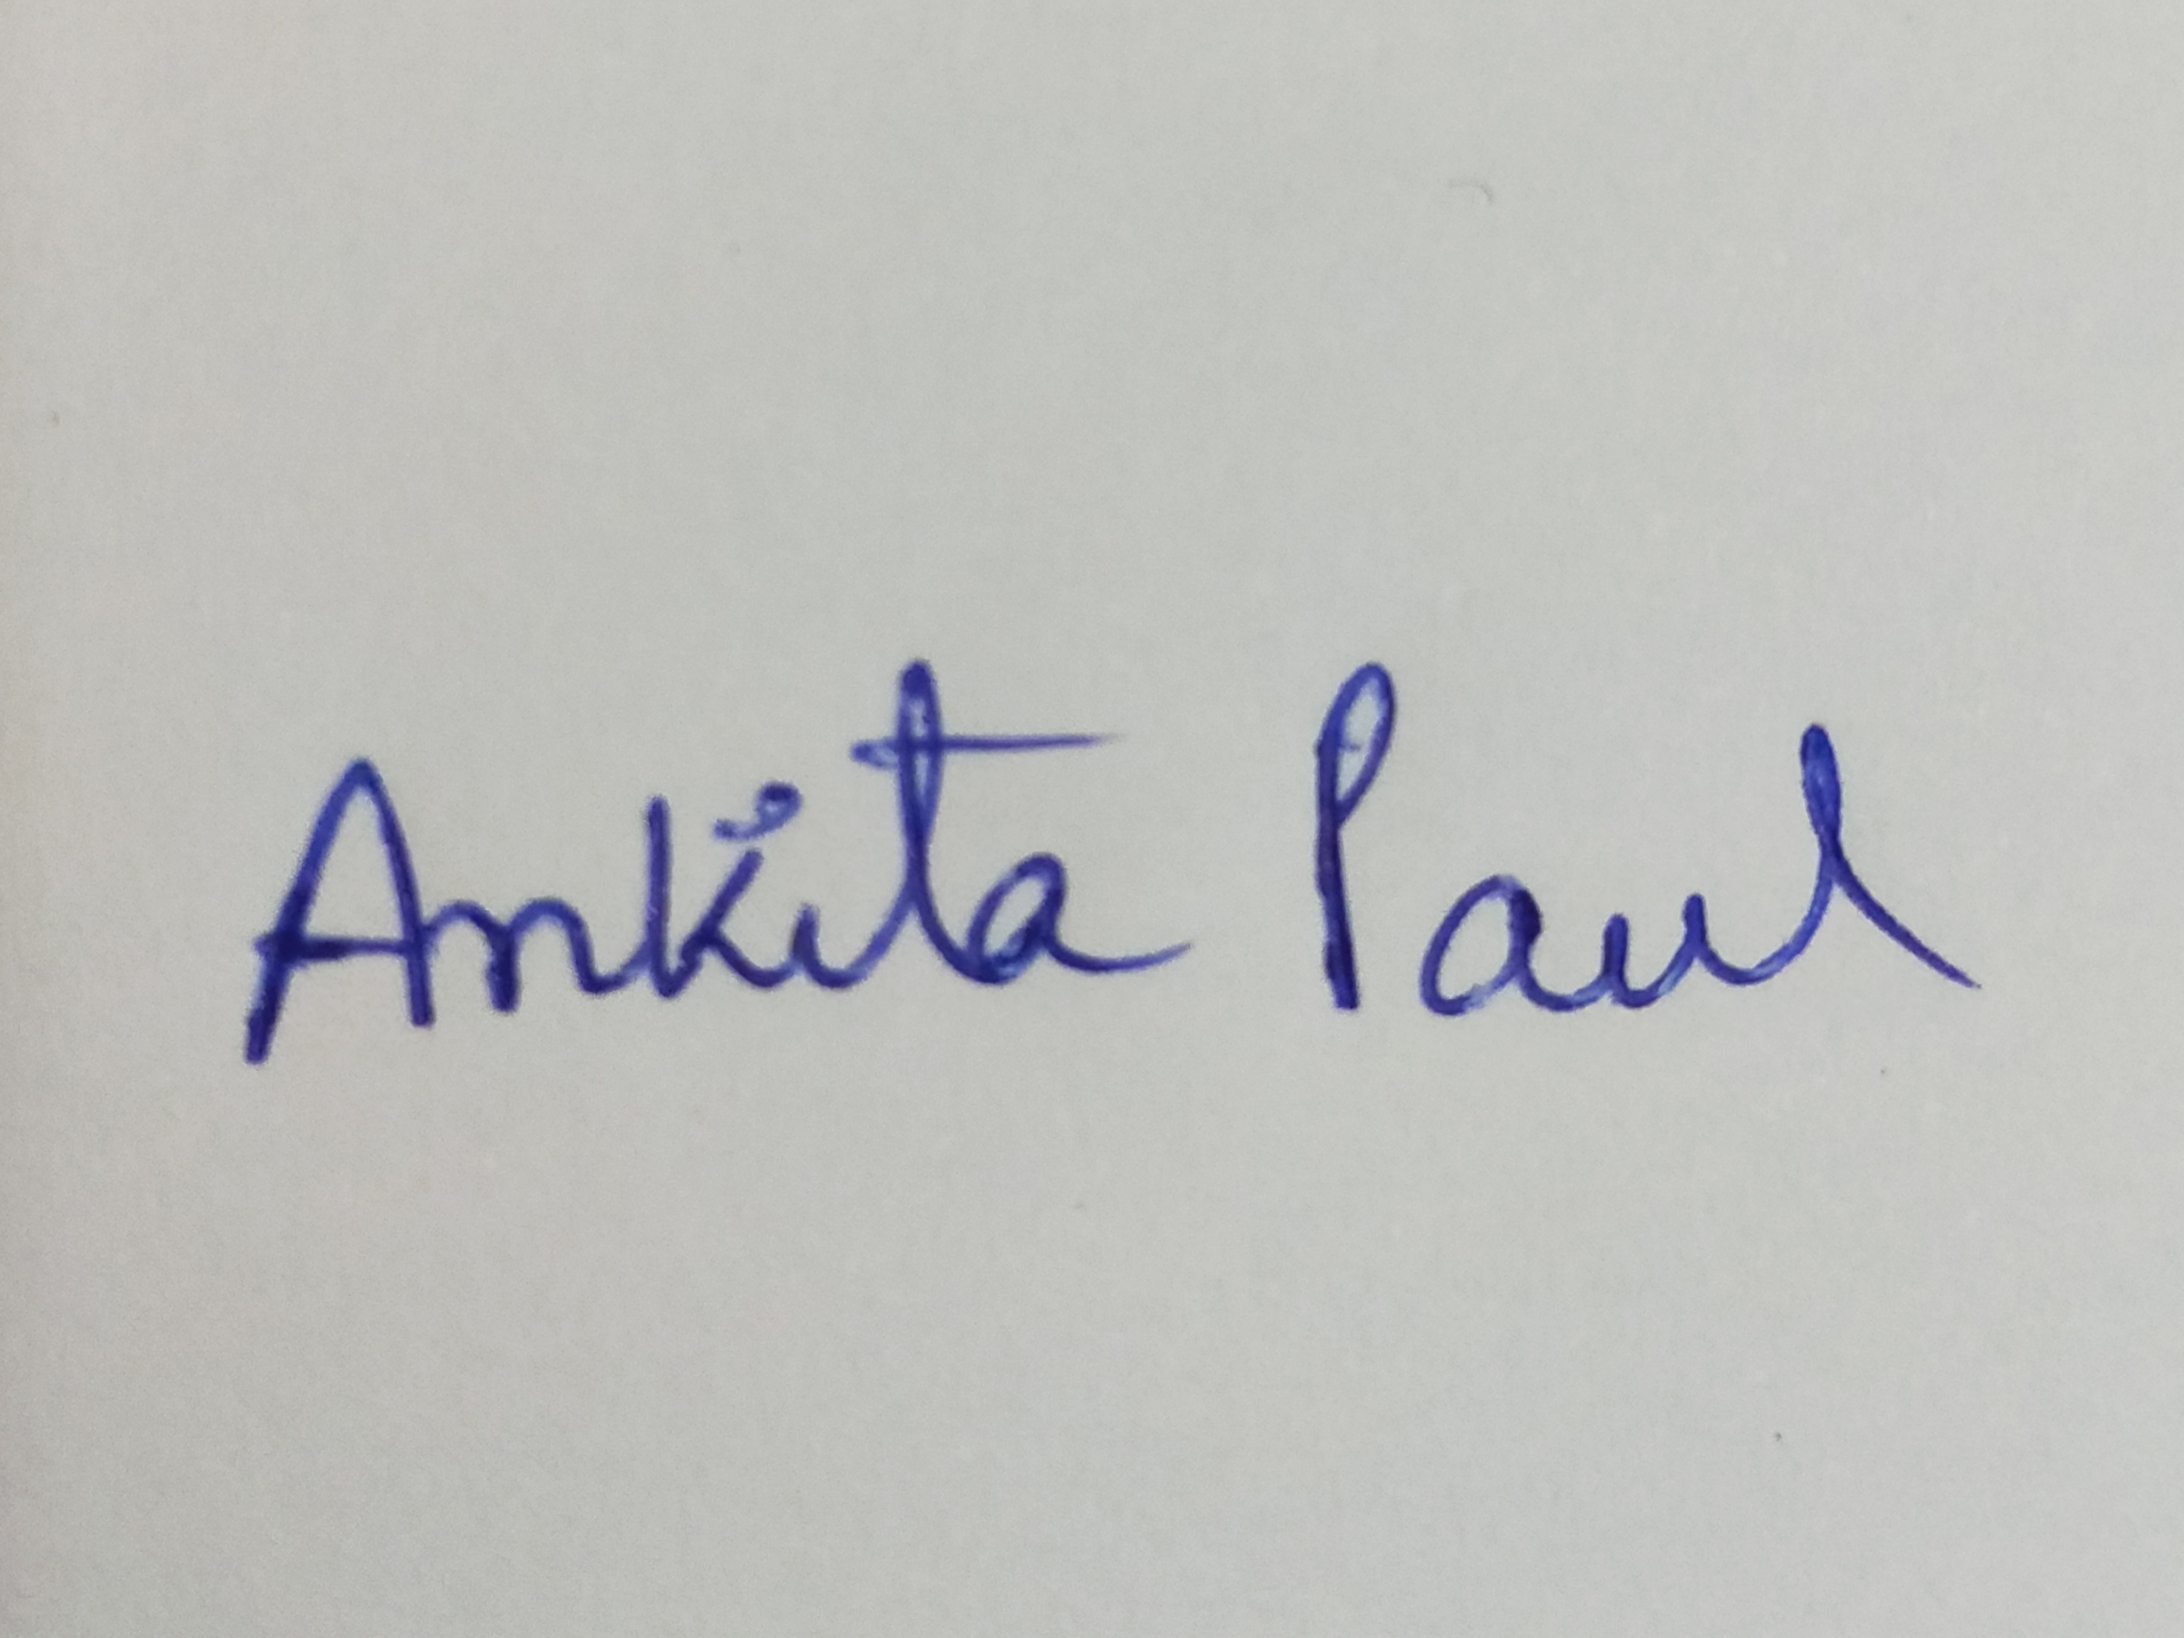 Ankita Paul